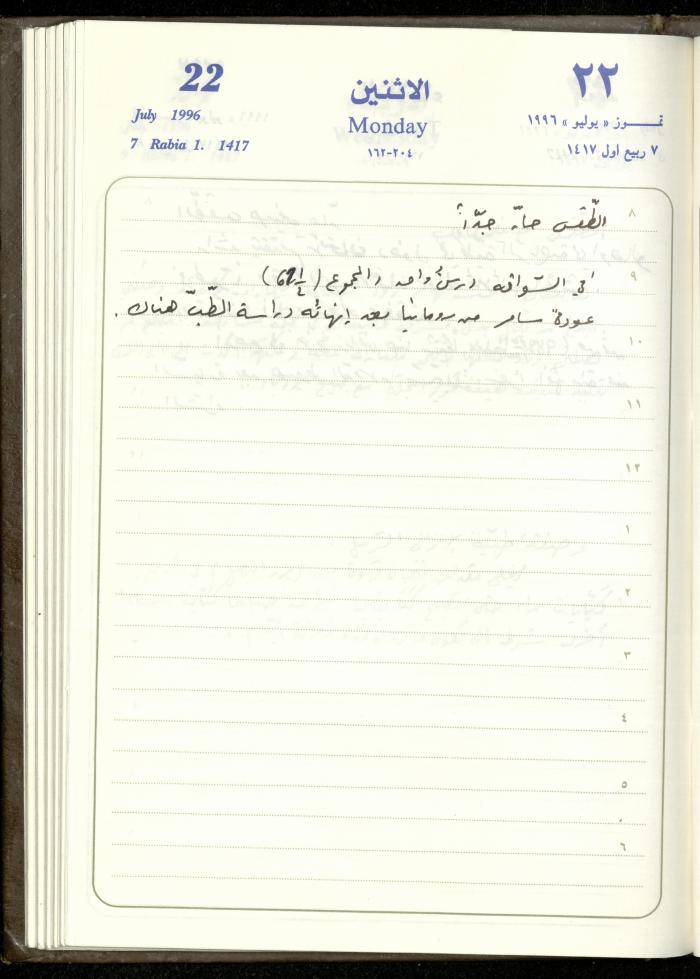 22
July 1996
7 Rabia 1. 1417
الاثنين
Monday
١٦٢-٢٠٤
٢٢
تمـــوز « يوليو » ١٩٩٦
٧ ربيع اول ١٤١٧
٨
الطّقس حارّ جدّاً
٩
في السّواقه درسٌ واحد والمجموع
عودة سامر من رومانيا بعد إنهائه دراسة الطّبّ هناك .
١٠
١١
١٢
١
٢
٣
٤
٥
٦